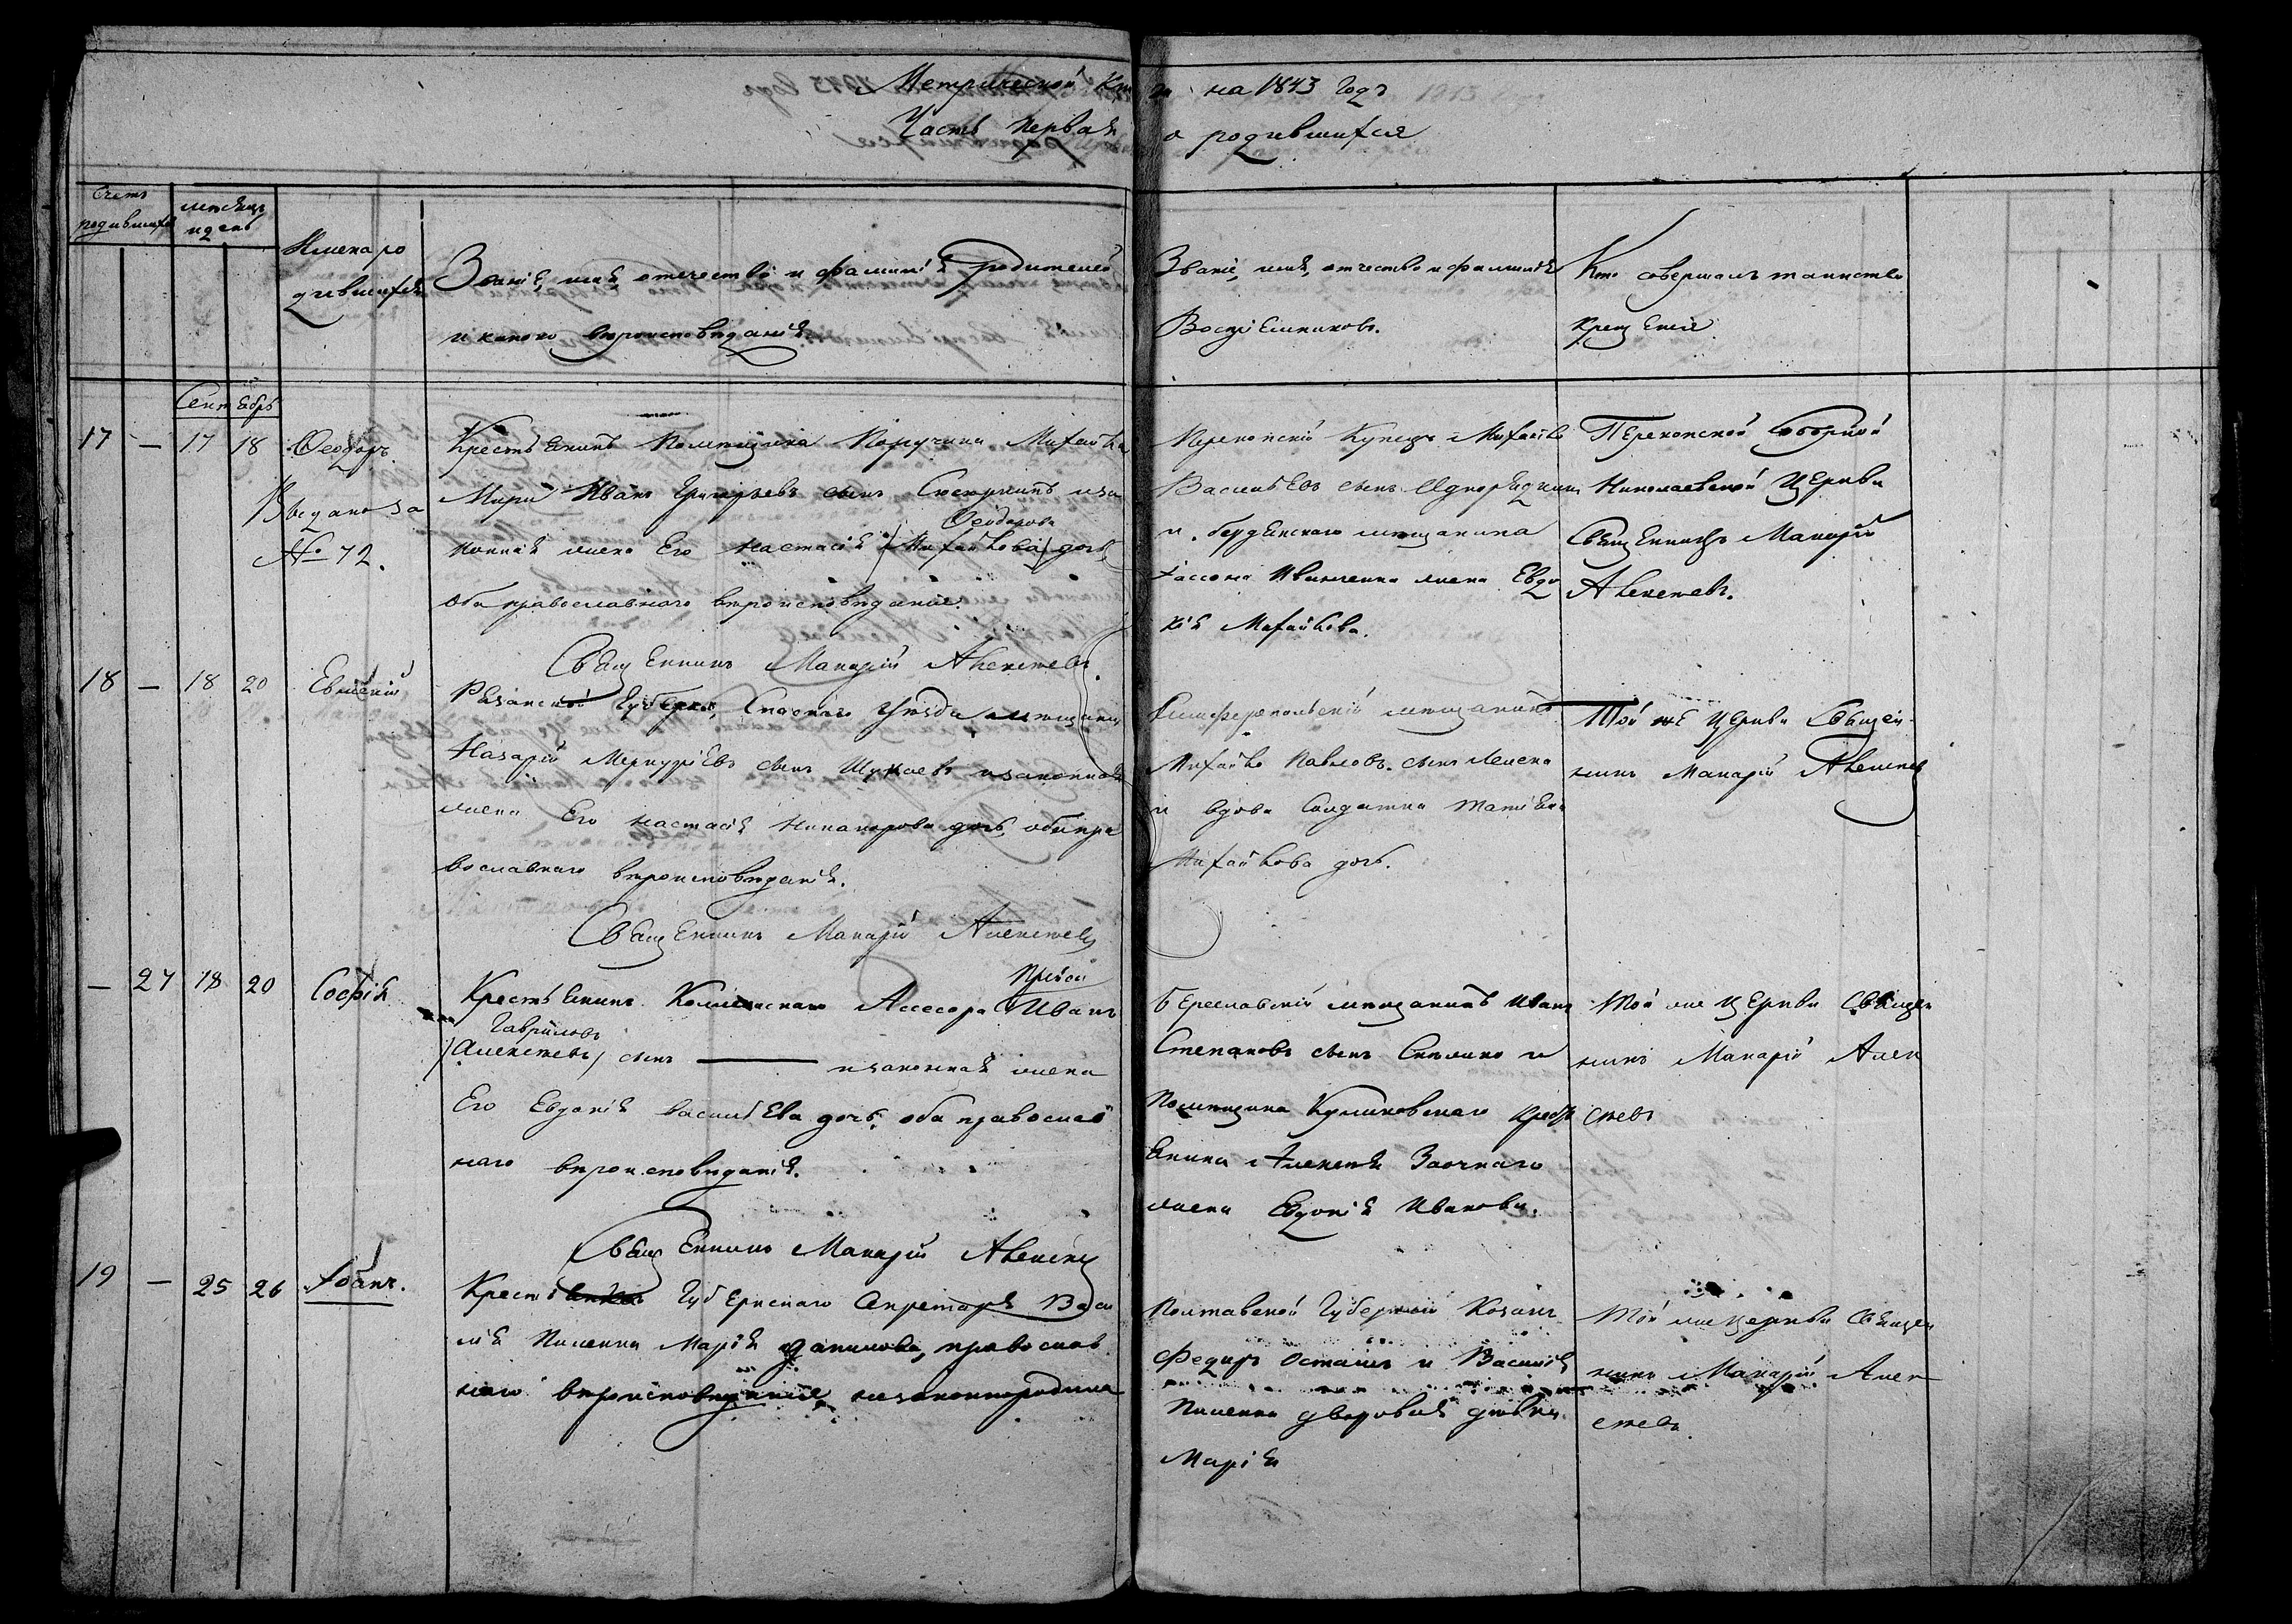 Метрической Кни
ги на 1843 Годъ
Часть первая
о родившихся
Счетъ родившихся
месяцъ и день
Имена ро
дившихся
Званіе, имя, отечество и фамилія родителей
и какого вѣроисповѣданія.
Званіе, имя, отчество и фамилія
Воспріемниковъ.
Кто совершалъ таинство
крещенія
Сентябрь
17 — 17 18 Ѳеодоръ.
Выдано за
№ 72.
Крестьянинъ Помѣщика Поручика Михаила
Мири Иванъ Григорьевъ сынъ и за
Ѳеодорова
конная жена Его Настасія (Михайлова) дочь
оба православнаго вѣроисповѣданія.
Священникъ Макарій Алексѣевъ.
Перекопскій Купецъ Михайло
Васильевъ сынъ
и бердянскаго мѣщанина
жена Евдо
кія Михайлова.
Перекопской Соборной
Николаевской Церкви
Священникъ Макарій
Алексѣевъ.
18 — 18 20 Евменій
Рязанской Губерніи, Спаскаго уѣзда мѣщанинъ
Назарій Меркуріевъ сынъ Шукаевъ и законная
жена Его Настасія Никанорова дочь, оба пра
вославнаго вѣроисповѣданія.
Священникъ Макарій Алексѣевъ
Симферопольскій мѣщанинъ
Михайло Павловъ сынъ
и вдова Солдатка Татіяна
Михайлова дочь.
Той же Церкви Священ
никъ Макарій Алексѣевъ
— 27 18 20 Софія
Крестьянинъ Коллежскаго Ассесора Иванъ
Гавриловъ
(Алексѣевъ) сынъ — и законная жена
Его Евдокія Васильева дочь, оба православ
наго вѣроисповѣданія.
Священникъ Макарій Алексѣевъ
Береславскій мѣщанинъ Иванъ
Степановъ сынъ и
Помѣщика Куликовскаго кресть
янина Алексѣя Заочнаго
жена Евдокія Иванова.
Той же Церкви Священ
никъ Макарій Алек
сѣевъ
19 — 25 26 Іоанъ.
Крестьянка Губернскаго Секретаря Васи
лія Пиленка Марія Данилова, православ
наго вѣроисповѣданія, незаконнородила
Полтавской Губерніи Козакъ
Федоръ Осташъ и Василія
Пиленка дворовая дѣвка
Марія
Той же Церкви Священ
никъ Макарій Алек
сѣевъ.